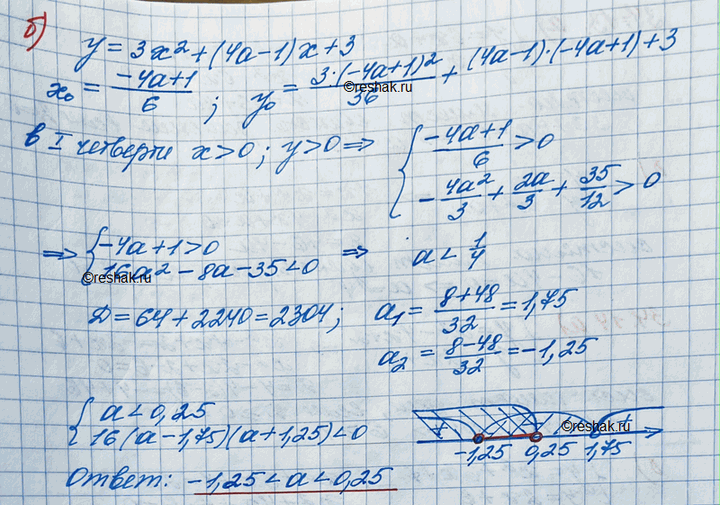 б)
y = 3x² + (4a-1)x + 3
x₀ = (-4a+1)/6 ; y₀ = 3·(-4a+1)²/36 + (4a-1)·(-4a+1)+3
©reshak.ru
в I четверти x>0; y>0 ⇒ { (-4a+1)/6 > 0
-4a²/3 + 2a/3 + 35/12 > 0
⇒ { -4a+1>0 ⇒ a < 1/4
16a² - 8a - 35 < 0
©reshak.ru
Д = 64 + 2240 = 2304; a₁ = (8+48)/32 = 1,75
a₂ = (8-48)/32 = -1,25
{ a < 0,25
16(a-1,75)(a+1,25) < 0
©reshak.ru
+
-1,25 0,25 1,75
Ответ: -1,25 < a < 0,25